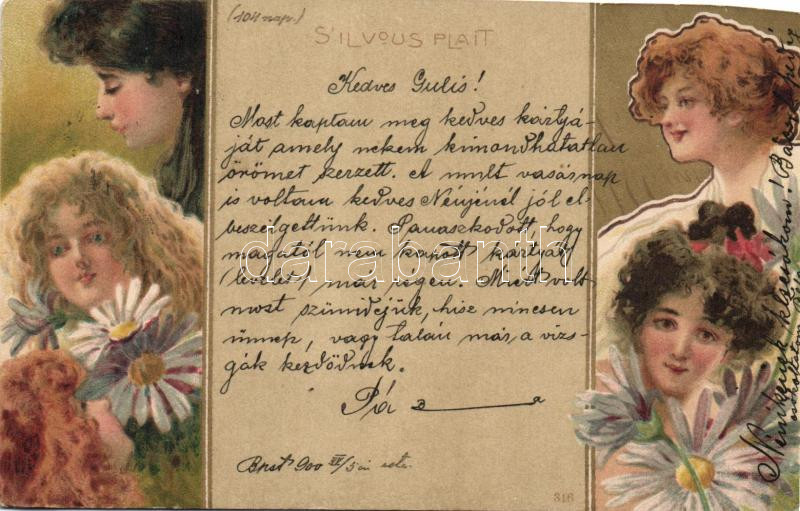 (104 nap.)
S'IL VOUS PLAIT
Kedves Gulis!
Most kaptam meg kedves kártyá-
ját amely nekem kimondhatatlan
örömet szerzett. A mult vasárnap
is voltam kedves Nénjénél jól el-
beszélgettünk. Panaszkodott hogy
magától nem kapott kártyát
(levelet) már régen. Miért volt
most szünidejük, hisz nincsen
ünnep, vagy talán már a vizs-
gák kezdődnek.
Pá
Bpest 900 5/én este.
316
Nénikének kézcsókom!
darabanth